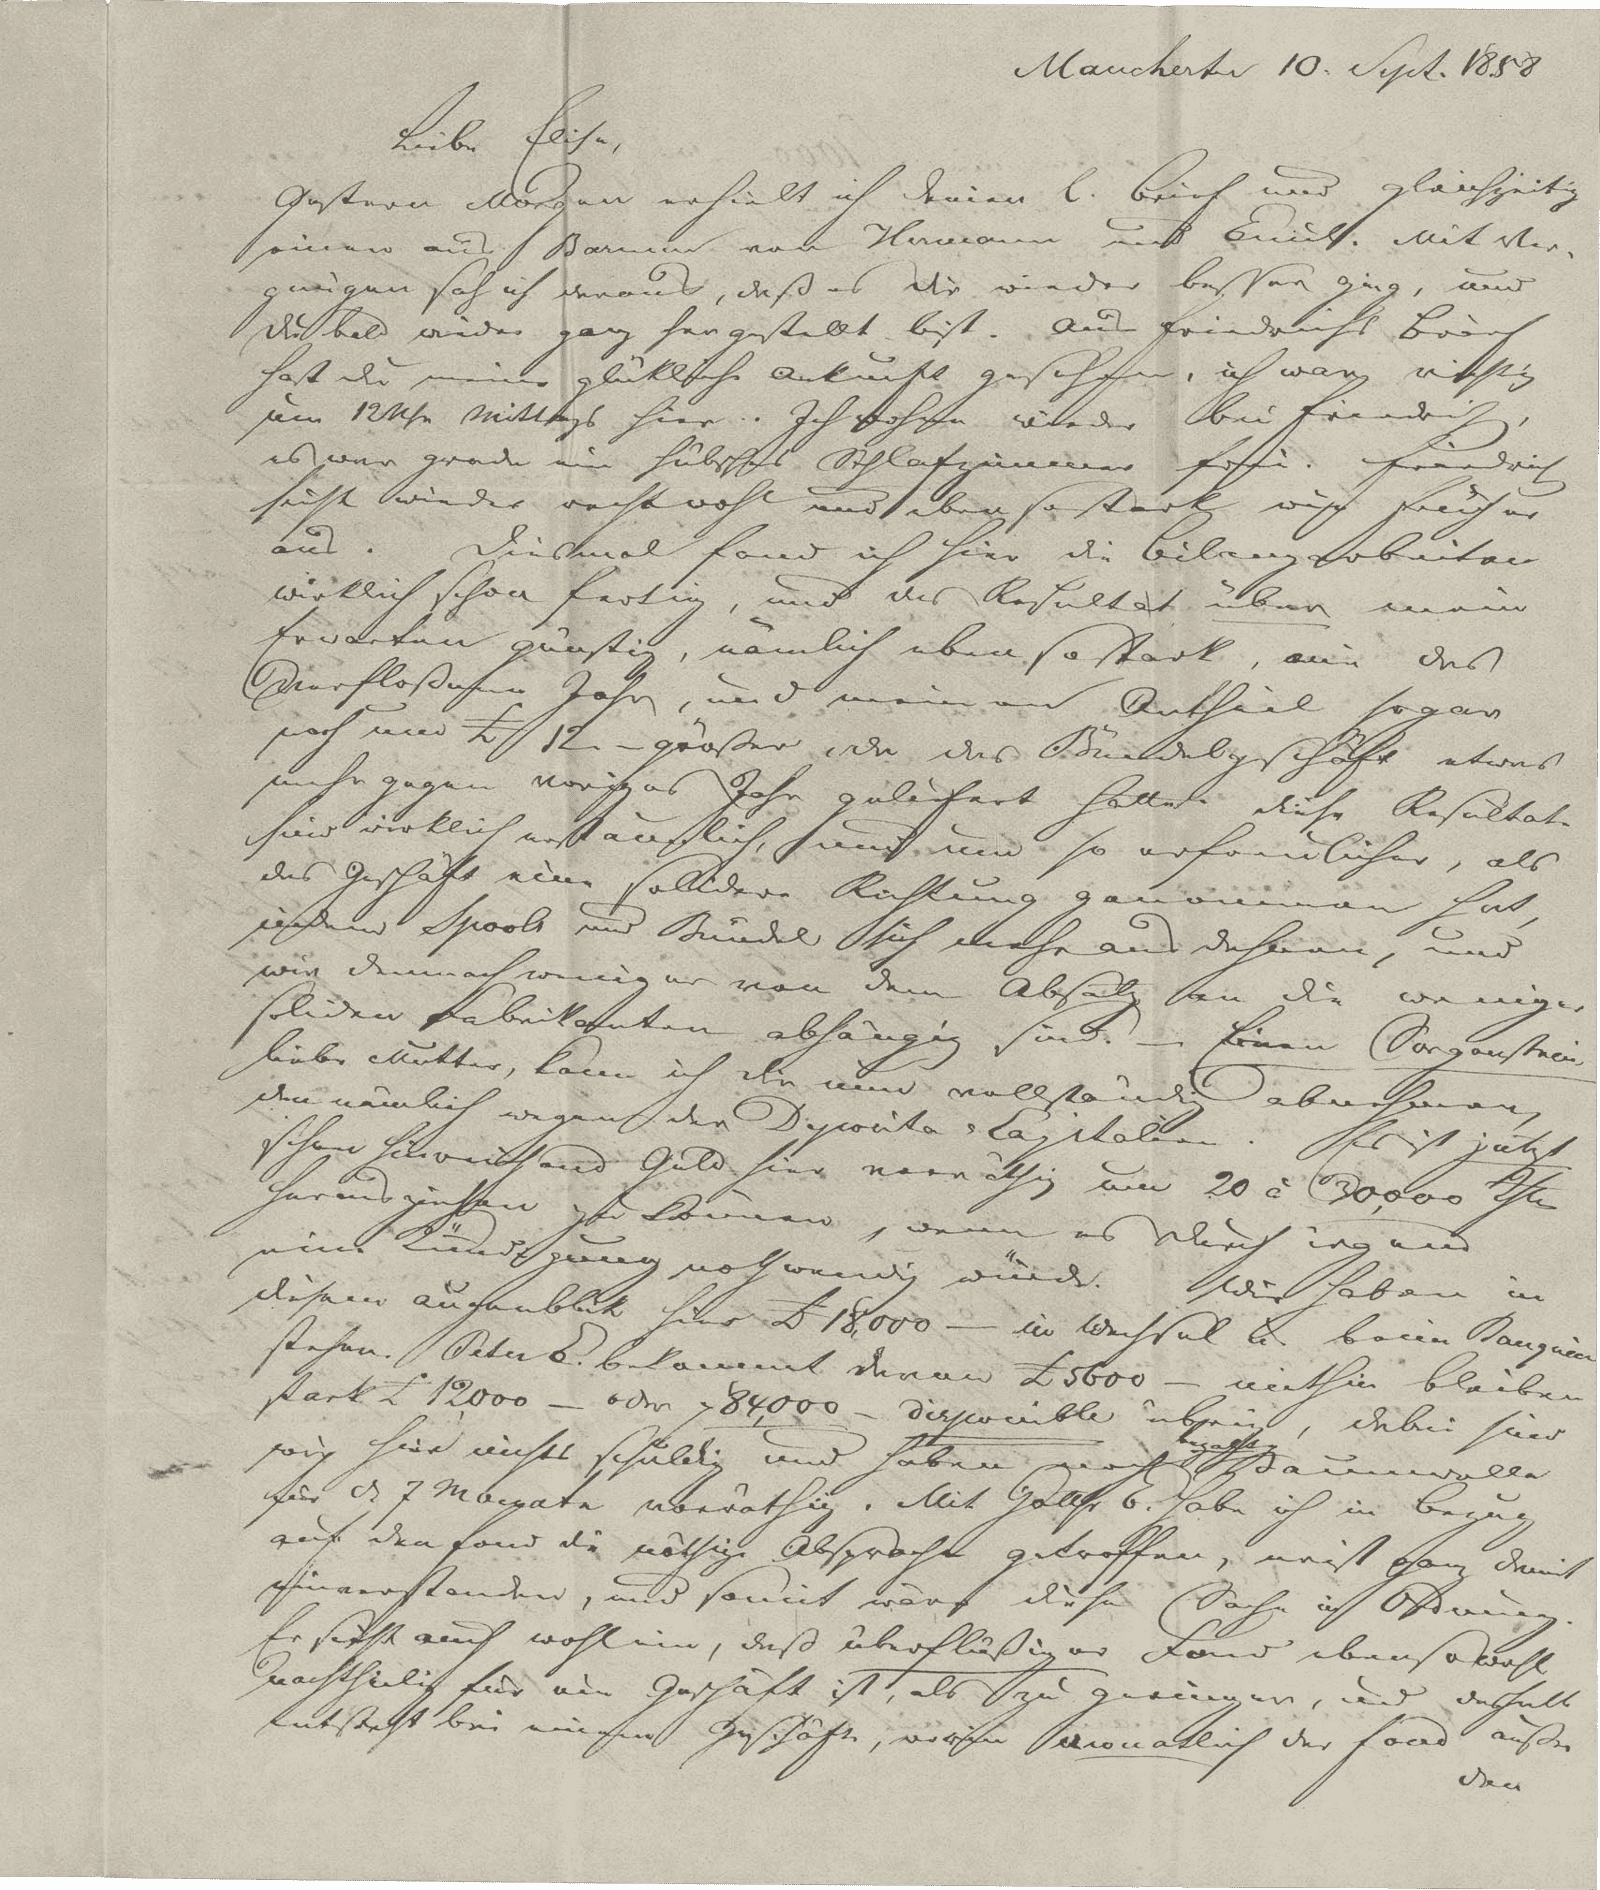 Manchester 10. Sept. 1858
Liebe Elise,
Gestern Morgen erhielt ich deinen l. Brief und gleichzeitig
einen aus Barmen von Hermann und Emil. Mit Ver-
gnügen sah ich daraus, daß es dir wieder besser ging, und
du bald wieder ganz hergestellt bist. Aus Friedrichs Brief
hast du meine glückliche Ankunft gesehen, ich war richtig
um 12 Uhr Mittags hier. Ich wohne wieder bei Friedrich,
es war grade ein hübsches Schlafzimmer frei. Friedrich
sieht wieder recht wohl und eben so stark wie früher
aus. Diesmal fand ich hier die Bilanzarbeiten
wirklich schon fertig, und das Resultat über mein
Erwarten günstig, nämlich eben so stark, wie das
verfloßene Jahr, und meinen Antheil sogar
noch um £ 12 – größer, da das Bündelgeschäft etwas
mehr gegen voriges Jahr geliefert hatte. Diese Resultate
sind wirklich erstaunlich, und um so erfreulicher, als
das Geschäft eine solidere Richtung genommen hat,
indem Spools und Bündel sich mehr ausdehnen, und
wir demnach weniger von dem Absatz an die weniger
soliden Fabrikanten abhängig sind. – Einen Sorgenstein,
liebe Mutter, kann ich dir nun vollständig abnehmen,
den nämlich wegen der Deposita-Capitalien. Es ist jetzt
schon hinreichend Geld hier vorräthig um 20 à 30,000 Th
herausziehen zu können, wenn es durch irgend
eine Kündigung nothwendig würde. Wir haben in
diesem Augenblick hier £ 18,000 – in Wechsel u. beim Banquier
stehen. Peter E. bekommt davon £ 5600 – mithin bleiben
stark £ 12,000 – oder 84,000 – disponible übrig, dabei sind
wir hier nichts schuldig und haben noch bezahlte Baumwolle
für 7 Monate vorräthig. Mit Gottfr. E. habe ich in Bezug
auf den Fond die nöthige Absprache getroffen, er ist ganz damit
einverstanden, und somit wäre diese Sache in Ordnung.
Er sieht auch wohl ein, daß überflüßiger Fond ebensowohl
nachtheilig für ein Geschäft ist, als zu geringer, und deshalb
entsteht bei einem Geschäft, worin monatlich der Fond außer
den